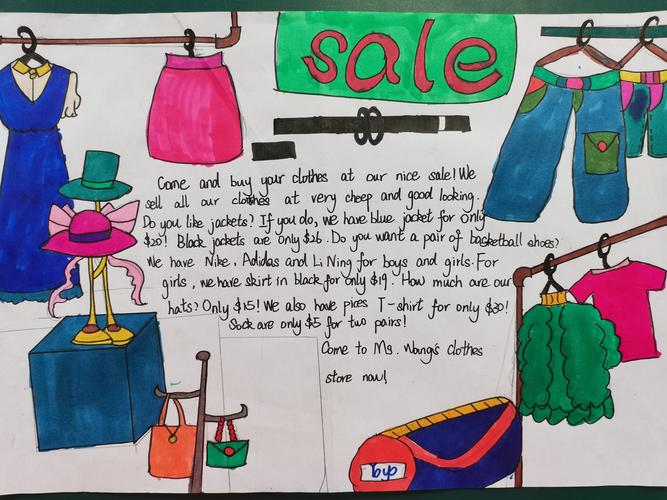 sale
Come and buy your clothes at our nice sale! We
sell all our clothes at very cheep and good looking.
Do you like jackets? If you do, we have blue jacket for only
$20! Black jackets are only $26. Do you want a pair of basketball shoes?
We have Nike, Adidas and Li Ning for boys and girls. For
girls, we have skirt in black for only $19. How much are our
hats? Only $15! We also have pices T-shirt for only $30!
Sock are only $5 for two pairs!
Come to Ms. Wang's clothes
store now!